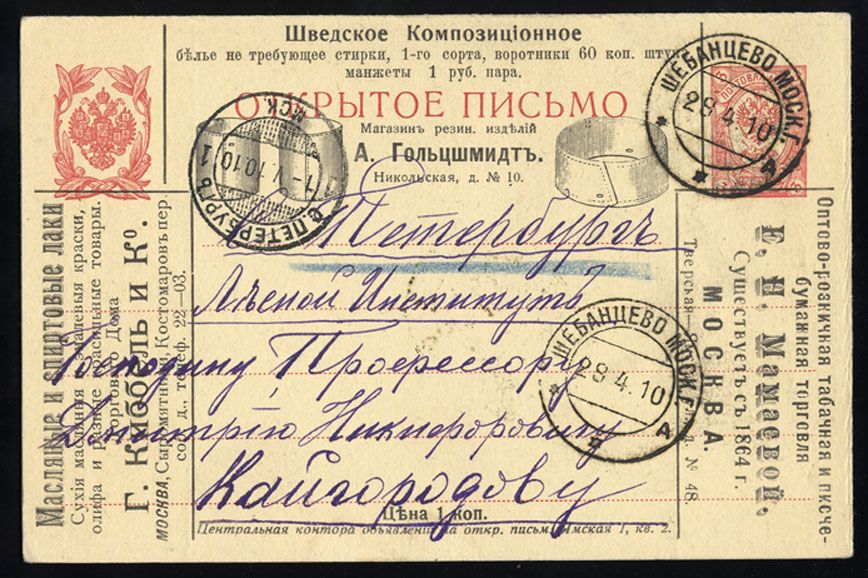 Шведское Композиціонное
бѣлье не требующее стирки, 1-го сорта, воротники 60 коп. штук
манжеты 1 руб. пара.
ОТКРЫТОЕ ПИСЬМО
Магазинъ резин. издѣлій
А. Гольцшмидтъ.
Никольская, д. № 10.
ШЕБАНЦЕВО МОСК.Г.
28 4 10
С ПЕТЕРБУРГЪ
1-V.10.10
Петербургъ
Лѣсной Институтъ
Господину Профессору
Дмитрію Никифоровичу
Кайгородову
ШЕБАНЦЕВО МОСК.Г.
28 4 10
А
Масляные и спиртовые лаки
Сухія масляныя и эмалевыя краски,
олифа и разные москательные товары.
Торговаго Дома
Г. Киббель и Ко.
МОСКВА, Сыромятники, Костомаровъ пер
соб. д., телеф. 22—03.
Оптово-розничная табачная и писче-
бумажная торговля
Е. Н. Мамаевой,
Существуетъ съ 1864 г.
МОСКВА.
Тверская
д. № 48.
Цѣна 1 коп.
Центральная контора объявленій на откр. письм. Ямская 1, кв. 2.